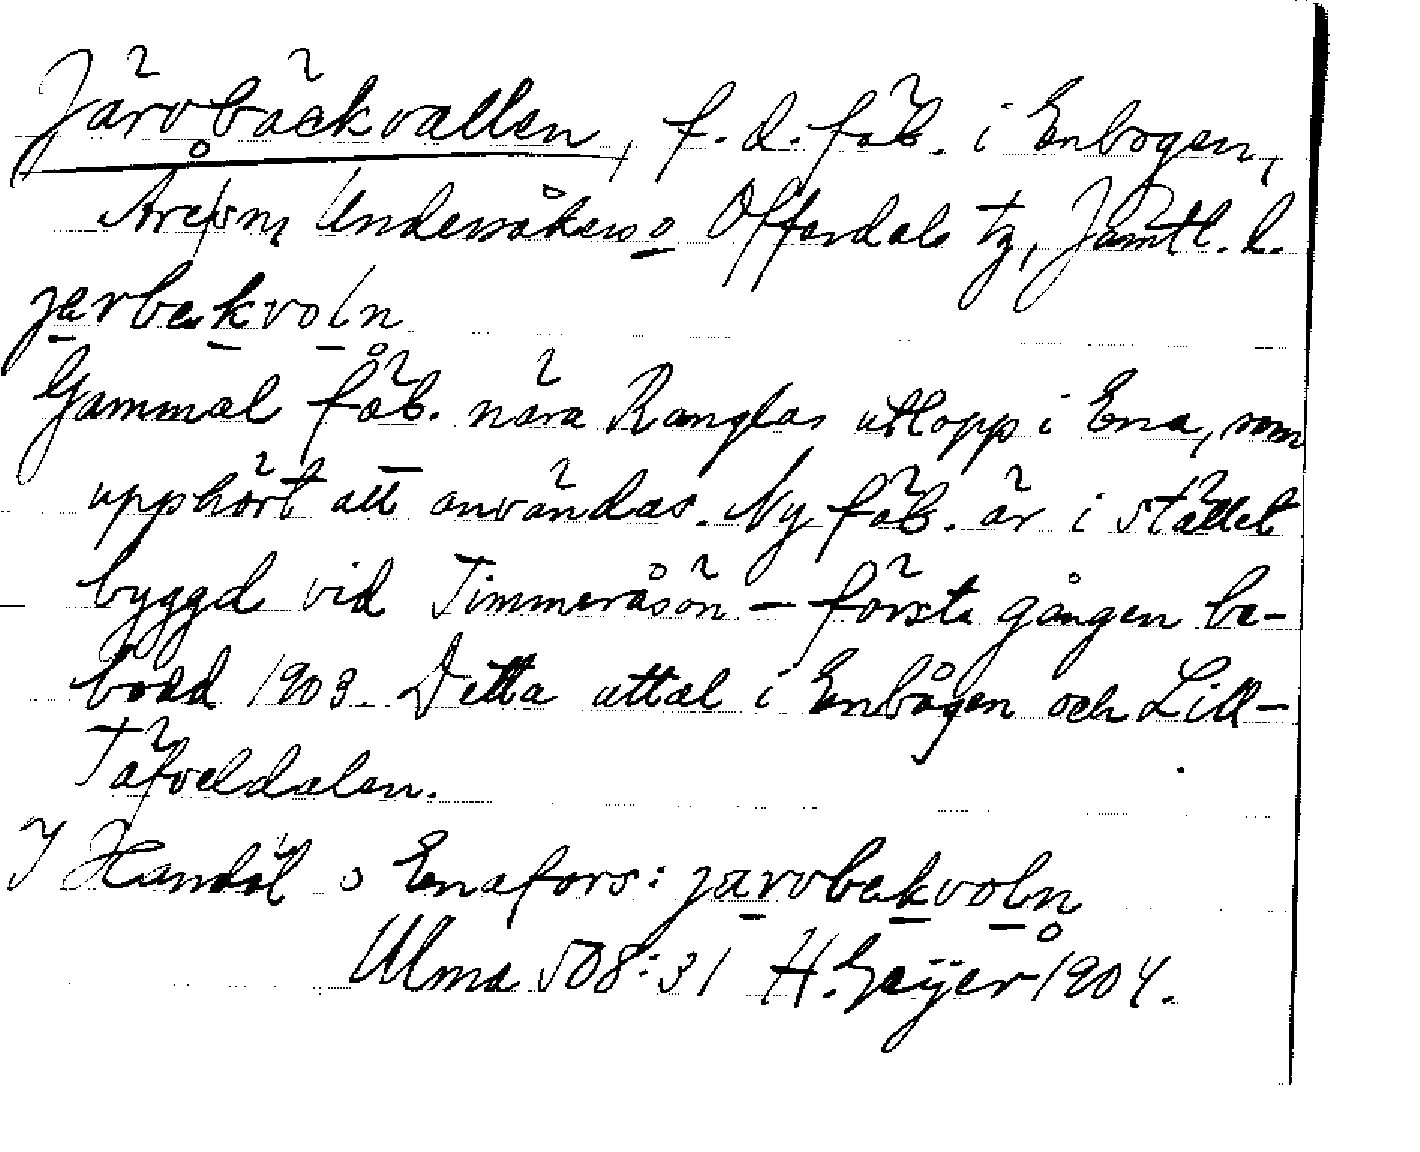 Järvbäckvallen, f. d. fäb. i Enbogen,
Åre sn, Undersåkers o Offerdals tg, Jämtl. l.
jerbekvoln
Gammal fåb. nära Ranglas utlopp i Ena, som
upphört att användas. Ny fäb. är i stället
byggd vid Timmeråsön – första gången be-
bodd 1903. Detta uttal i Enbågen och Lill-
Täfveldalen.
I Handöl o Enafors: jarvbekvoln
Ulma 508:31 H. Geijer 1904.